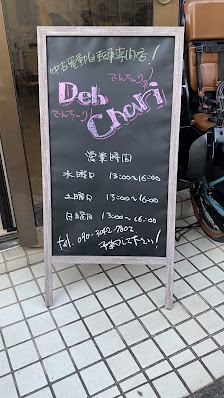 中古電動自転車専門店!
でんちゃり!
Den
Chari
でんちゃり!
営業時間
水曜日 13:00~16:00
土曜日 13:00~16:00
日曜日 13:00~16:00
tel. 090-3042-7802
予約して下さい!